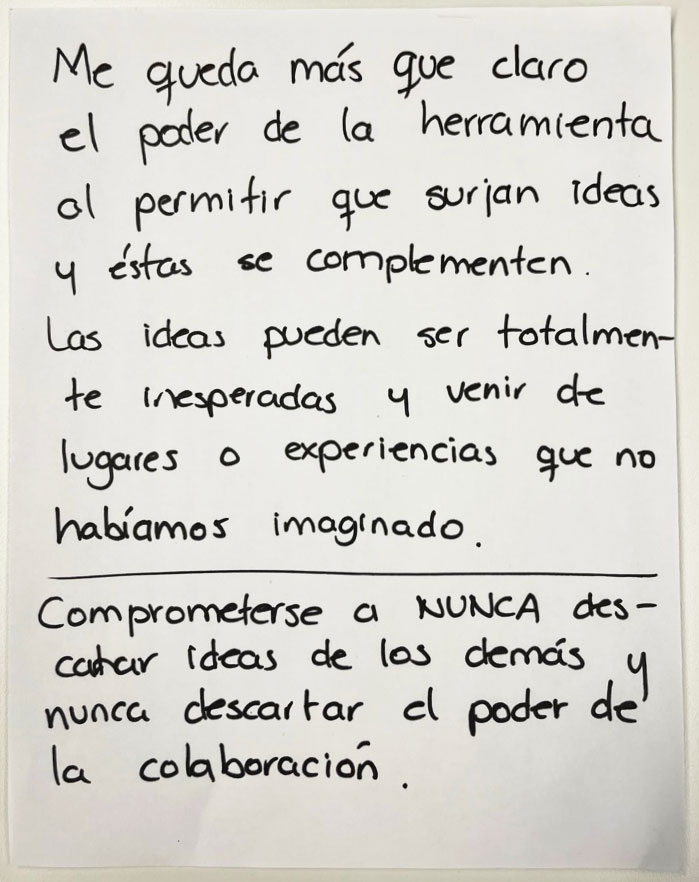 Me queda más que claro
el poder de la herramienta
al permitir que surjan ideas
y éstas se complementen.
Las ideas pueden ser totalmen-
te inesperadas y venir de
lugares o experiencias que no
habíamos imaginado.
Comprometerse a NUNCA des-
cartar ideas de los demás y
nunca descartar el poder de
la colaboración.